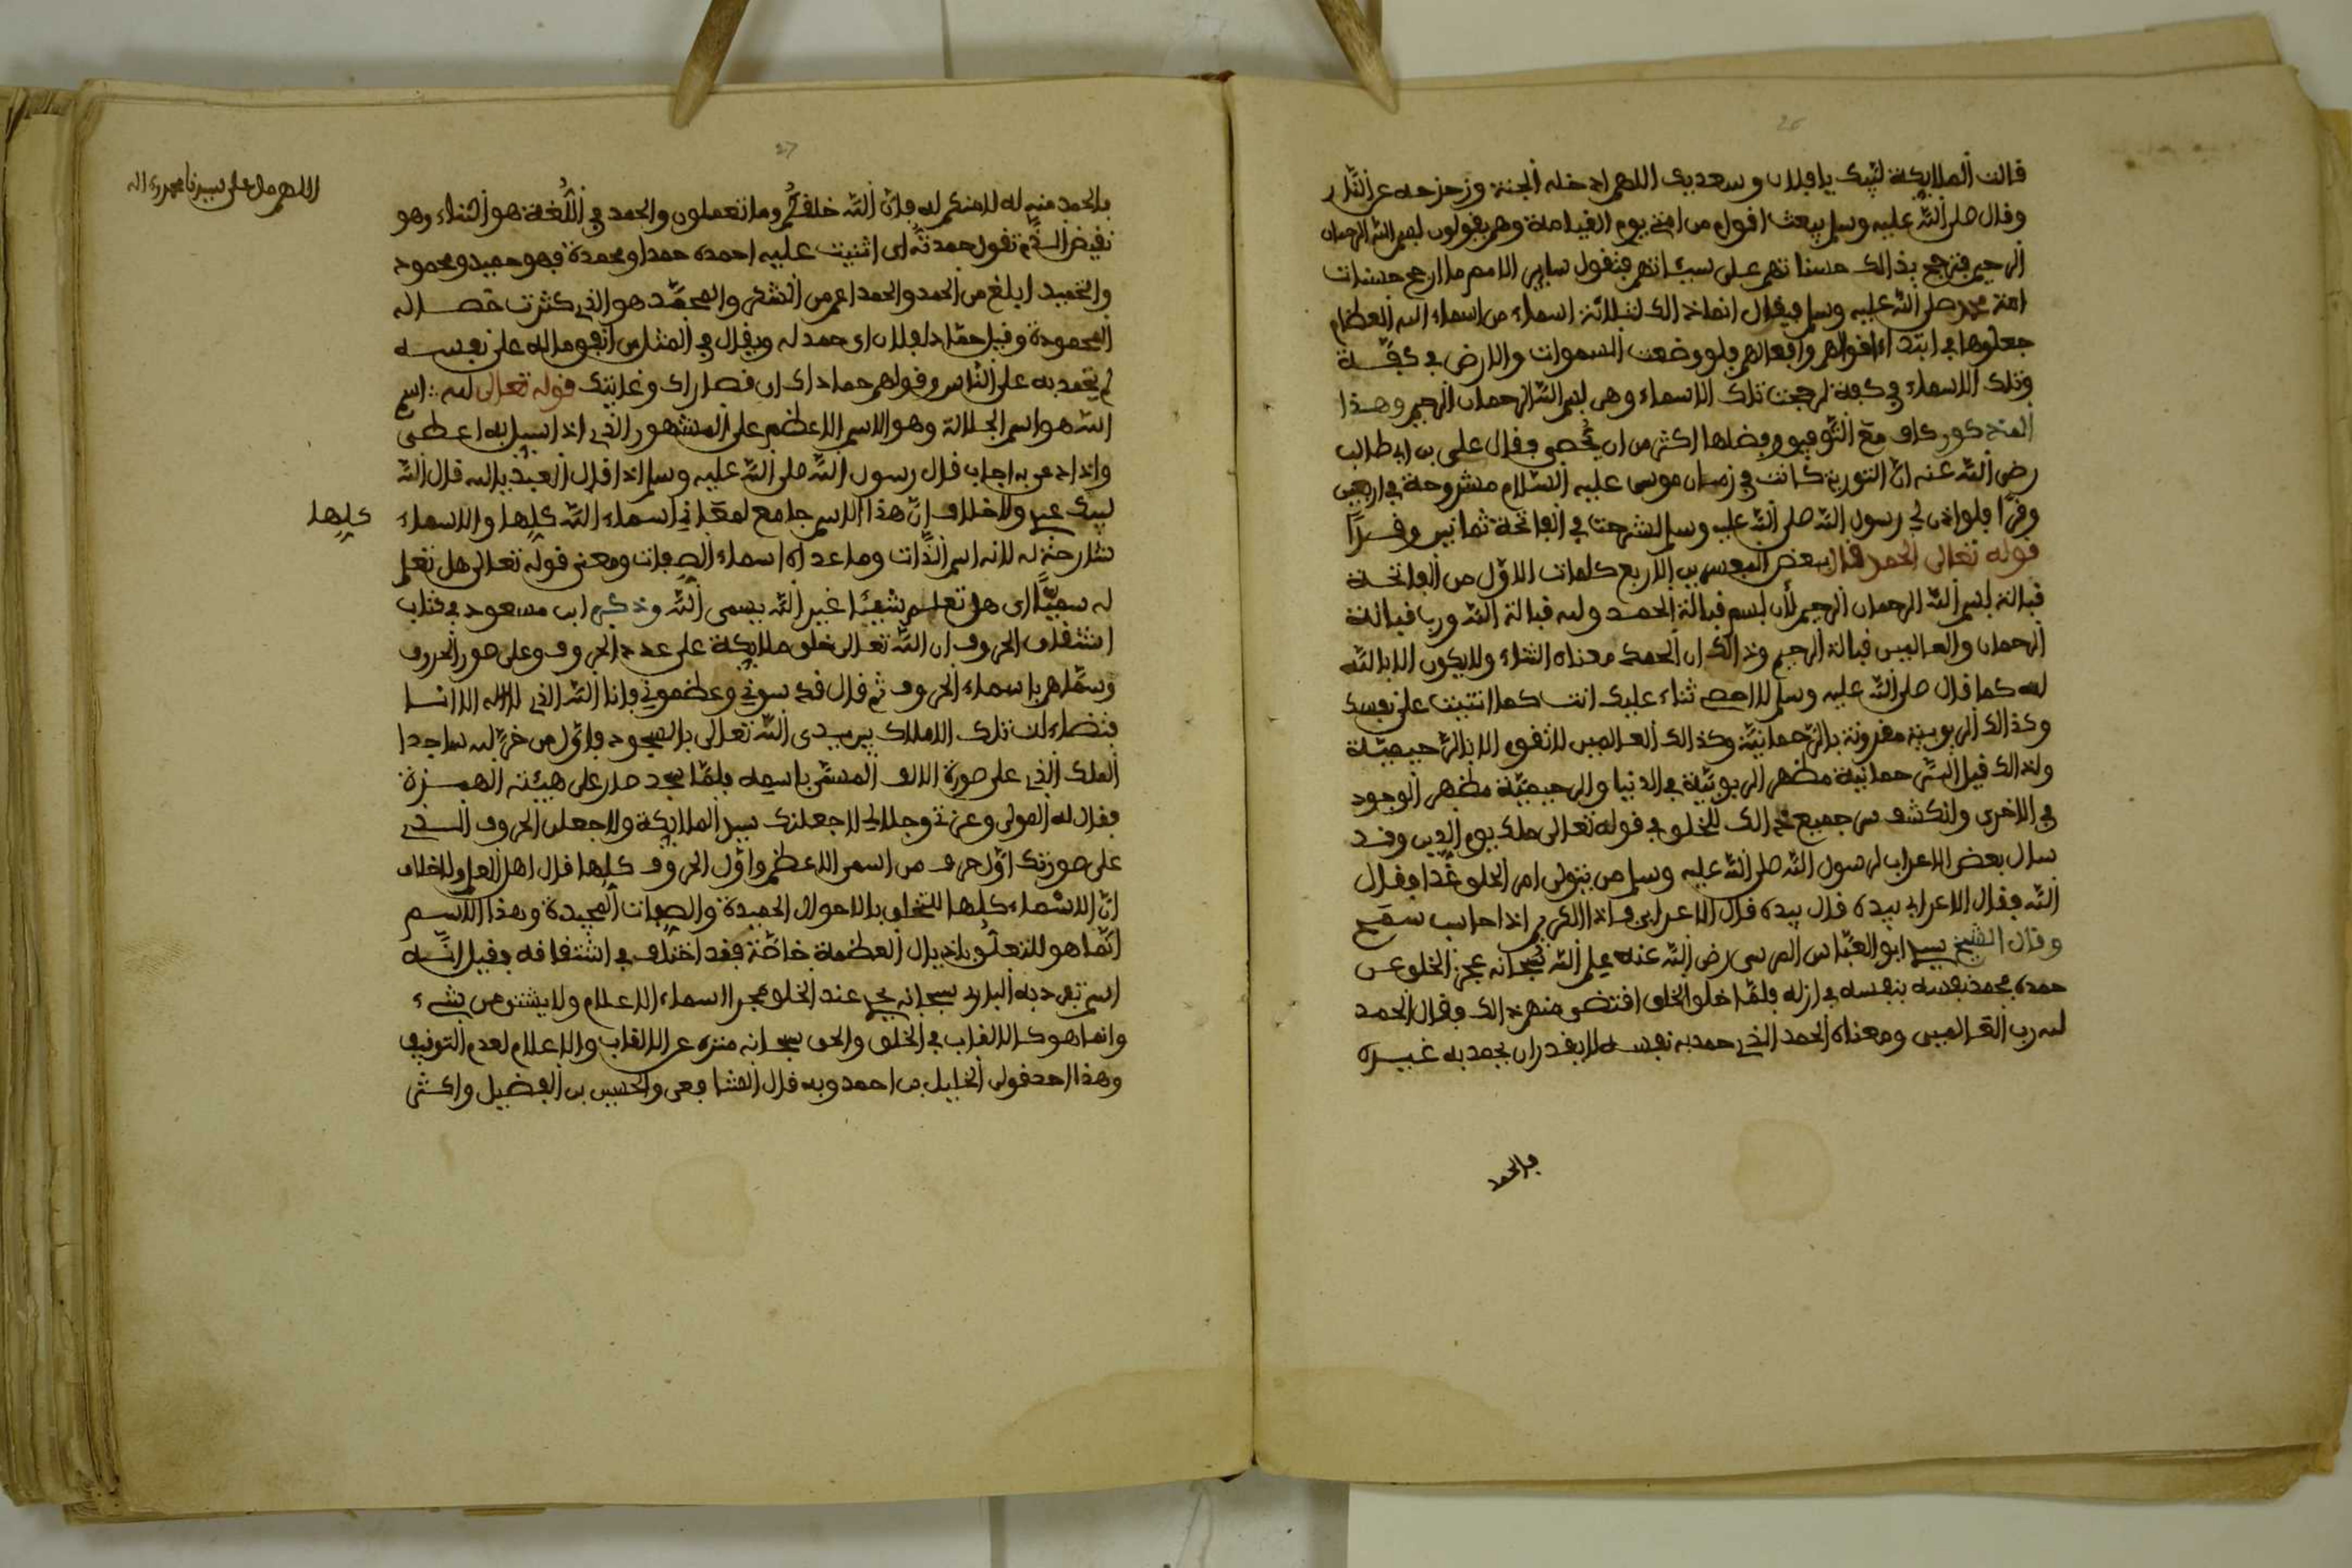 26
قالت الملايكة لبيك يا فلان وسعديك اللهم ادخله الجنة وزحزحه عن النار
وقال صلى الله عليه وسلم يبعث اقوام من امتي يوم القيامة وهم يقولون بسم الله الرحمان
الرحيم فترجح بذالك حسناتهم على سيئاتهم فتقول ساير الامم ما ارجح حسنات
امة محمد صلى الله عليه وسلم فيقال انما ذالك لثلاثة اسماء من اسماء الله العظام
جعلوها في ابتداء اقوالهم وافعالهم فلو وضعت السموات والارض في كفة
وتلك الاسماء في كفة لرجحت تلك الاسماء وهي بسم الله الرحمان الرحيم وهذا
المذكور كاف مع التوفيق وفضلها اكثر من ان يحصى وقال علي بن ابي طالب
رضي الله عنه ان التورية كانت في زمان موسى عليه السلام مشروحة في اربعين
وقرا فلو اذن لي رسول الله صلى الله عليه وسلم لشرحت في الفاتحة ثمانين وقرا
قوله تعالى الحمد قال بعض المفسرين الاربع كلمات الاول من الفاتحة
قبالة بسم الله الرحمان الرحيم لان بسم قبالة الحمد ولله قبالة الله ورب قبالة
الرحمان والعالمين قبالة الرحيم وذالك ان الحمد معناه الثناء ولا يكون الا بالله
لله كما قال صلى الله عليه وسلم لا احصي ثناء عليك انت كما اثنيت على نفسك
وكذالك الربوبية مقرونة بالرحمانية وكذالك العالمين لا تقوم الا بالرحيمية
ولذالك قيل الرحمانية مظهر الربوبية في الدنيا والرحيمية مظهر الوجود
في الاخرى ولتكشف من جميع ذالك للخلق في قوله تعالى ملك يوم الدين وقد
سال بعض الاعراب لرسول الله صلى الله عليه وسلم من يتولى امر الخلق غدا فقال
الله فقال الاعرابي بيده قال بيده قال الاعرابي فاذا الكريم اذا حاسب سمح
وقال الشيخ سيدي ابو العباس المرسي رضي الله عنه علم الله سبحانه عجز الخلق عن
حمده فحمد نفسه بنفسه في ازله فلما خلق الخلق اقتضى منهم ذالك فقال الحمد
لله رب العالمين ومعناه الحمد الذي حمد به نفسه لا يقدر ان يحمد به غيره
فالحمد
27
اللهم صل على سيدنا محمد واله
فالحمد منه له لا منكم له فان الله خلقكم وما تعملون والحمد في اللغة هو الثناء وهو
نقيض الذم تقول حمدته اي اثنيت عليه احمده حمدا ومحمدة فهو حميد ومحمود
والتحميد ابلغ من الحمد والحمد اعم من الشكر والمحمد هو الذي كثرت خصاله
المحمودة وقيل حمادا لفلان اي حمد له ويقال في المثل من انفق ماله على نفسه
لم يحمد به على الناس وقولهم حماداك ان قصاراك وغايتك قوله تعالى لله اسم
الله هو اسم الجلالة وهو الاسم الاعظم على المشهور الذي اذا سيل به اعطى
واذا دعي به اجاب قال رسول الله صلى الله عليه وسلم اذا قال العبد يا لله قال الله
لبيك عبدي ولا خلاف ان هذا الاسم جامع لمعاني اسماء الله كلها والاسماء
كلها
شارحة له لانه اسم الذات وما عداه اسماء الصفات ومعنى قوله تعالى هل تعلم
له سميا اي هل تعلم شيئا غير الله يسمى الله وذكر ابن مسعود في كتاب
اشتقاق الحروف ان الله تعالى خلق ملايكة على عدد الحروف وعلى صور الحروف
وسماهم باسماء الحروف ثم قال قدسوني وعظموني فانا الله الذي لا اله الا انا
فتضاءلت تلك الاملاك بين يدي الله تعالى بالسجود فاول من خر لله ساجدا
الملك الذي على صورة الالف المسمى باسمه فلما سجد صار على هيئة الهمزة
فقال له المولى وعزتي وجلالي لاجعلنك سيد الملايكة ولاجعلن الحروف الذي
على صورتك اول حرف من اسمي الاعظم واول الحروف كلها قال اهل العلم ولا خلاف
ان الاسماء كلها للتخلق بالاحوال الحميدة والصفات المجيدة وهذا الاسم
انما هو للتعلق باذيال العظمة خاصة فقد اختلف في اشتقاقه فقيل انه
اسم تفرد به الباري سبحانه يجري عند الخلق مجرا اسماء الاعلام ولا يشتق من شيء
وانما هو كالالقاب في الخلق والحق سبحانه منزه عن الالقاب والاعلام لعدم التوقيف
وهذا احد قولي الخليل بن احمد وبه قال الشافعي والحسين بن الفضيل واكثر